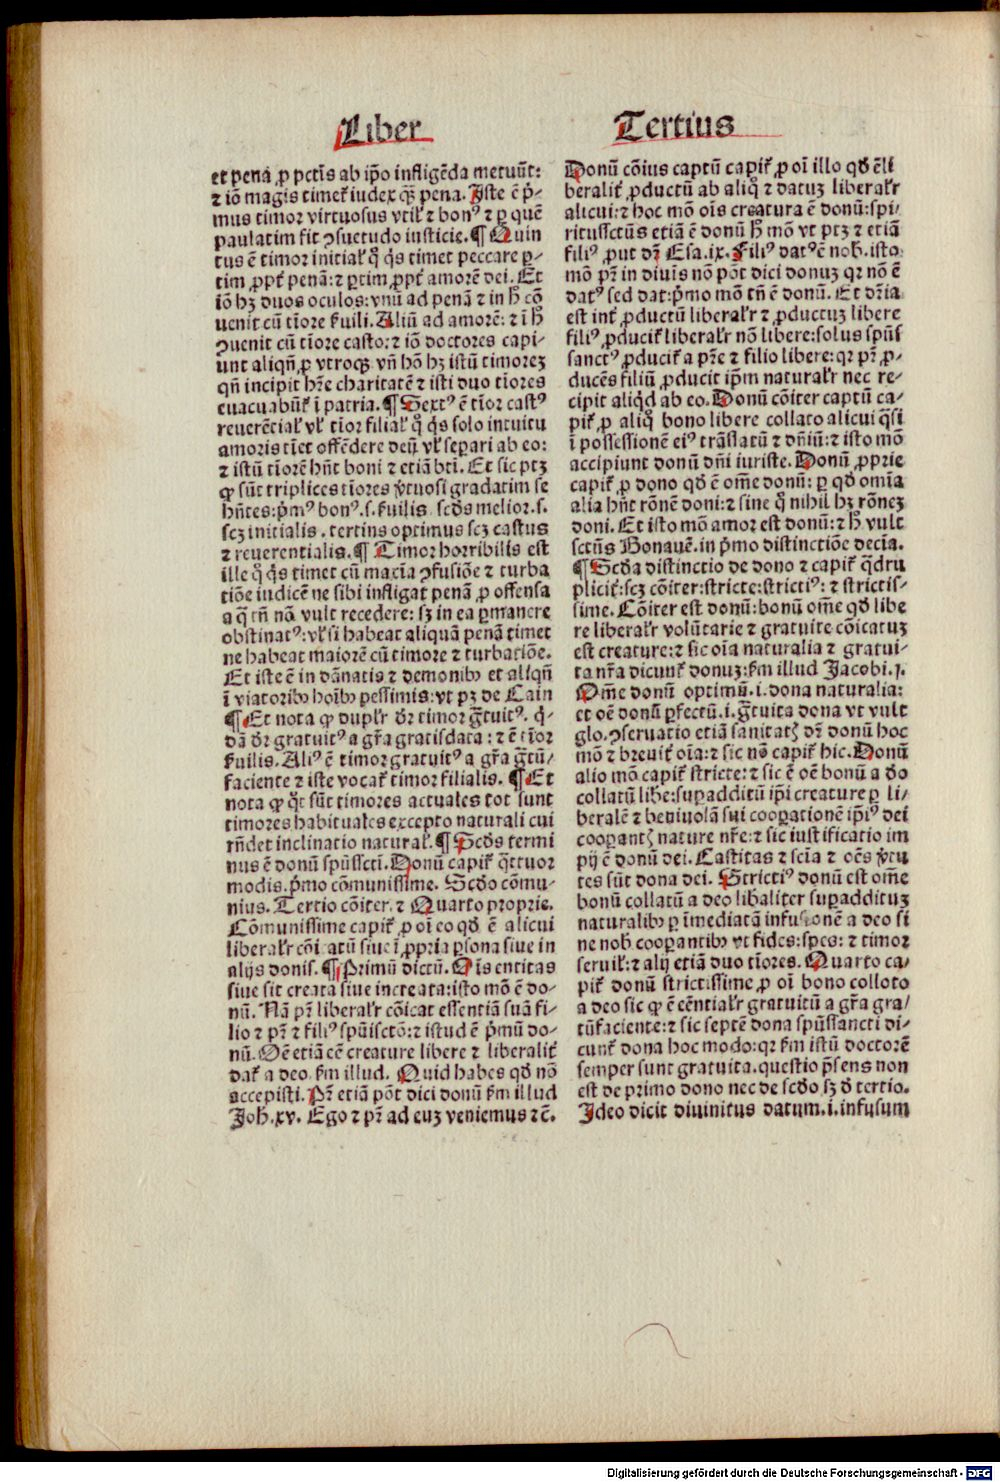 Liber Tertius
et pena ꝓ pctīs ab ip̄o infligēda metuūt:
⁊ iō magis timet᷑ iudex qꝫ pena. Iste ē p̄-
mus timor virtuosus vtil᷑ ⁊ bonꝰ ⁊ ꝑ quē
paulatim fit ꝯsuetudo iusticie. ¶ Quin
tus ē timor initial᷑ quo q̇s timet peccare ꝑ-
tim ꝓpt᷑ penā: ⁊ ꝑtim ꝓpt᷑ amorē dei. Et
iō hꝫ duos oculos: vnū ad penā ⁊ in h̄ cō
uenit cū tīore ẜuili. Aliū ad amorē: ⁊ ī h̄
ꝯuenit cū tīore casto: ⁊ iō doctores capi-
unt aliqn̄ ꝓ vtroqꝫ. vn̄ hō hꝫ istū timorez
qn̄ incipit hr̄e charitatē ⁊ isti duo tīores
euacuabūt᷑ ī patria. ¶ Sextꝰ ē tīor castꝰ
reuerētial᷑ vl᷑ tīor filial᷑ quo q̇s solo intuitu
amoris tīet offēdere deū vl᷑ seꝑari ab eo:
⁊ istū tīorē hn̄t boni ⁊ etiā bti. Et sic ptꝫ
ꝙ sūt triplices tīores v̓tuosi gradatim se
hn̄tes: p̄mꝰ bonꝰ .s. ẜuilis. scd̄s melior .s.
scꝫ initialis. tertius optimus scꝫ castus
⁊ reuerentialis. ¶ Timor horribilis est
ille quo q̇s timet cū maxīa ꝯfusiōe ⁊ turba
tiōe iudicē ne sibi infligat penā ꝓ offensa
a qua tn̄ nō vult recedere: sꝫ in ea ꝑmanere
obstinatꝰ: vl᷑ si habeat aliquā penā timet
ne habeat maiorē cū timore ⁊ turbatiōe.
Et iste ē in dānatis ⁊ demonibꝰ et aliqn̄
ī viatoribꝰ hoībꝰ pessimis: vt pꝫ de Cain
¶ Et nota ꝙ dupl᷑r dr̄ timor gr̄tuitꝰ. q̇-
dā dr̄ gratuitꝰ a gr̄a gratisdata: ⁊ ē tīor
ẜuilis. Aliꝰ ē timor gratuitꝰ a gr̄a gr̄tū-
faciente ⁊ iste vocat᷑ timor filialis. ¶ Et
nota ꝙ qͦt sūt timores actuales tot sunt
timores habituales excepto naturali cui
rn̄det inclinatio natural᷑. ¶ Scd̄s termi
nus ē donū spūssctī. Donū capit᷑ qͣttuor
modis. p̄mo cōmunissime. Scd̄o cōmu-
nius. Tertio cōiter. ⁊ Quarto proprie.
Cōmunissime capit᷑ ꝓ oī eo qd̄ ē alicui
liberal᷑r cōicatū siue ī ꝓpria ꝑsona siue in
alijs donis. ¶ Primū dictū. Oīs entitas
siue sit creata siue increata: isto mō ē do-
nū. Nā pr̄ liberal᷑r cōicat essentiā suā fi-
lio ⁊ pr̄ ⁊ filiꝰ spūisctō: ⁊ istud ē p̄mū do-
nū. Oē etiā eē creature libere ⁊ liberalit᷑
dat᷑ a deo. ẜm illud. Quid habes qd̄ nō
accepisti. Pr̄ etiā pōt dici donū ẜm illud
Joh. xv. Ego ⁊ pr̄ ad euꝫ veniemus ⁊c̄.
Donū cōius captū capit᷑ ꝓ oī illo qd̄ ē li
beralit᷑ ꝓductū ab aliquo ⁊ datuꝫ liberal᷑r
alicui: ⁊ hoc mō oīs creatura ē donū: spi-
ritussctūs etiā ē donū h̄ mō vt ptꝫ ⁊ etiā
filiꝰ ꝓut dr̄ Esa. ix. Filiꝰ datꝰ ē nob̄. isto
mō pr̄ in diuīs nō pōt dici donuꝫ qꝛ nō ē
datꝰ sed dat: p̄mo mō tn̄ ē donū. Et dr̄ia
est int᷑ ꝓductū liberal᷑r ⁊ ꝓductuꝫ libere
filiꝰ ꝓducit᷑ liberal᷑r nō libere: solus spūs
sanctꝰ ꝓducit᷑ a pr̄e ⁊ filio libere: qꝛ pr̄ ꝓ-
ducēs filiū ꝓducit ip̄m natural᷑r nec re-
cipit aliqd̄ ab eo. Donū cōiter captū ca-
pit᷑ ꝓ aliquo bono libere collato alicui qͣsi
ī possessionē eiꝰ trāslatū ⁊ dn̄iū: ⁊ isto mō
accipiunt donū dn̄i iuriste. Donū ꝓprie
capit᷑ ꝓ dono qd̄ ē om̄e donū: ꝑ qd̄ om̄ia
alia hn̄t rōnē doni: ⁊ sine quo nihil hꝫ rōneꝫ
doni. Et isto mō amor est donū: ⁊ h̄ vult
sctūs Bonauē. in p̄mo distinctiōe decīa.
¶ Scd̄a distinctio de dono ⁊ capit᷑ qͣdru
plicit᷑: scꝫ cōiter: stricte: strictiꝰ: ⁊ strictis-
sime. Cōiter est donū: bonū om̄e qd̄ libe
re liberal᷑r volūtarie ⁊ gratuite cōicatuꝫ
est creature: ⁊ sic oīa naturalia ⁊ gratui-
ta nr̄a dicunt᷑ donuꝫ: ẜm illud Jacobi. j.
Om̄e donū optimū .i. dona naturalia:
et oē donū ꝑfectū .i. gr̄tuita dona vt vult
glo. ꝯseruatio etiā sanitatꝭ dr̄ donū hoc
mō ⁊ breuit᷑ oīa: ⁊ sic nō capit᷑ hic. Donū
alio mō capit᷑ stricte: ⁊ sic ē oē bonū a deo
collatū libe: suꝑadditū ip̄i creature ꝑ li-
beralē ⁊ beniuolā sui cooꝑationē ip̄iꝰ dei
cooꝑantꝭ nature nr̄e: ⁊ sic iustificatio im
pij ē donū dei. Castitas ⁊ scīa ⁊ oēs v̓tu
tes sūt dona dei. Strictiꝰ donū est om̄e
bonū collatū a deo libaliter suꝑadditūꝫ
naturalibꝰ ꝑ īmediatā infusionē a deo si
ne nob̄ cooꝑantibꝰ vt fides: spes: ⁊ timor
seruil᷑: ⁊ alij etiā duo tīores. Quarto ca-
pit᷑ donū strictissime ꝓ oī bono colloto
a deo sic ꝙ ē eēntial᷑r gratuitū a gr̄a gra-
tūfaciente: ⁊ sic septē dona spūssancti di-
cunt᷑ dona hoc modo: qꝛ ẜm istū doctorē
semper sunt gratuita. questio p̄sens non
est de primo dono nec de scd̄o sꝫ d̄ tertio.
Ideo dicit diuinitus datum .i. infusum
Digitalisierung gefördert durch die Deutsche Forschungsgemeinschaft - DFG